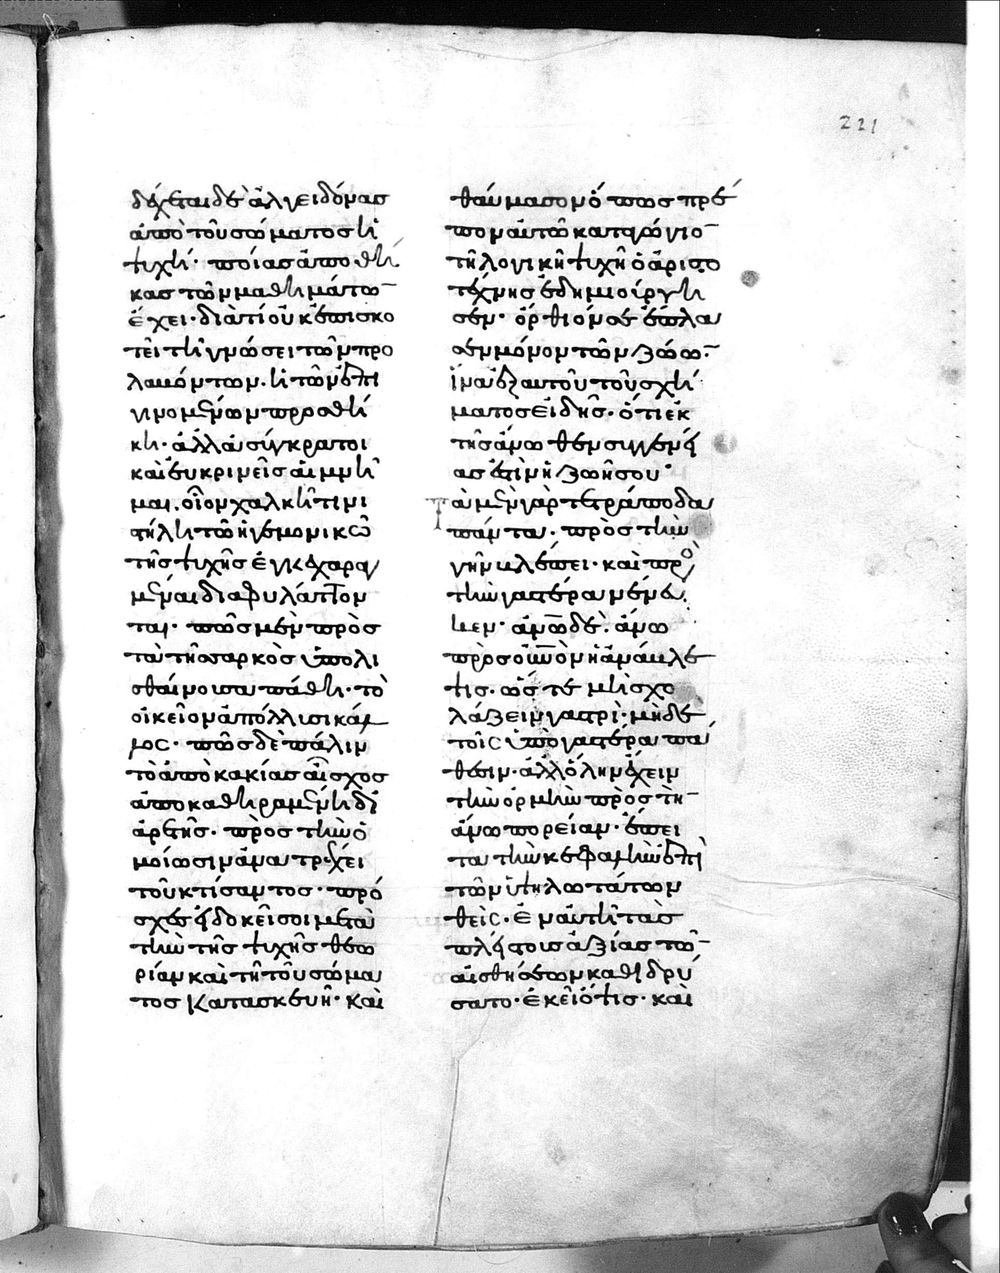 221
δέχεται δὲ ἀλγειδόνας
ἀπὸ τοῦ σώματος ἡ
ψυχή· ποίας ἀποθή
κας τῶν μαθημάτω
ἔχει· διὰ τί οὐκ ἐπισκο
τεῖ τῆ γνώσει τῶν προ
λαβόντων. ἡ τῶν ἐπι
γινομένων προσθή
κη· ἀλλὰ σύγκρατοι
καὶ εὐκρινεῖς αἱ μνῆ
μαι. οἷον χαλκῆ τινι
στήλη τῶ ἡγεμονικῶ
τῆς ψυχῆς ἐγκεχαραγ
μέναι διαφυλάττον
ται· πῶς μὲν πρὸς
τὰ τῆς σαρκὸς ὑπολι
σθαίνουσα πάθη· τὸ
οἰκεῖον ἀπόλλυσι κάλ
λος· πῶς δὲ πάλιν
τὸ ἀπὸ κακίας αἶσχος
ἀποκαθηραμένη δι᾽
ἀρετῆς· πρὸς τὴν ὁ
μοίωσιν ἀνατρέχει
τοῦ κτίσαντος· πρό
σχες εἰ δοκεῖ σοι μετὰ
τὴν τῆς ψυχῆς θεω
ρίαν καὶ τῆ τοῦ σώμα
τος κατασκευῆ· καὶ
θαύμασον ὅπως πρέ
πον αὐτῶ καταγώγιο
τῆ λογικῆ ψυχῆ ὁ ἀριστο
τέχνης ἐδημιούργη
σεν· ὄρθιον ἔπλα
σεν μόνον τῶν ζώω
ἵν᾽ ἐξ αὐτοῦ τοῦ σχή
ματος εἰδῆς· ὅτι ἐκ
τῆς ἄνωθεν συγγενεί
ας ἐστὶν ἡ ζωή σου·
Τὰ μὲν γὰρ τετράποδα
πάντα· πρὸς τὴν
γῆν βλέπει· καὶ πρὸ
τὴν γαστέρα νένευ
κεν· ἀνω̅ δὲ. ἄνω
πρὸς ου̅νο̅ν ἡ ἀνάβλε
ψις. ὥστε μὴ σχο
λάζειν γαστρὶ· μηδὲ
τοῖς ὑπὸ γαστέρα πά
θεσιν· ἀλλ᾽ ὅλην ἔχειν
τὴν ὁρμὴν πρὸς τὴ
ἄνω πορείαν· ἔπει
τα τὴν κεφαλὴν ἐπὶ
τῶν ὑψηλωτάτων
θεὶς· ἐν αὐτῆ τὰς
πλείστου ἀξίας τῶ
αἰσθήσεων καθιδρύ
σατο· ἐκεῖ ὄψις· καὶ